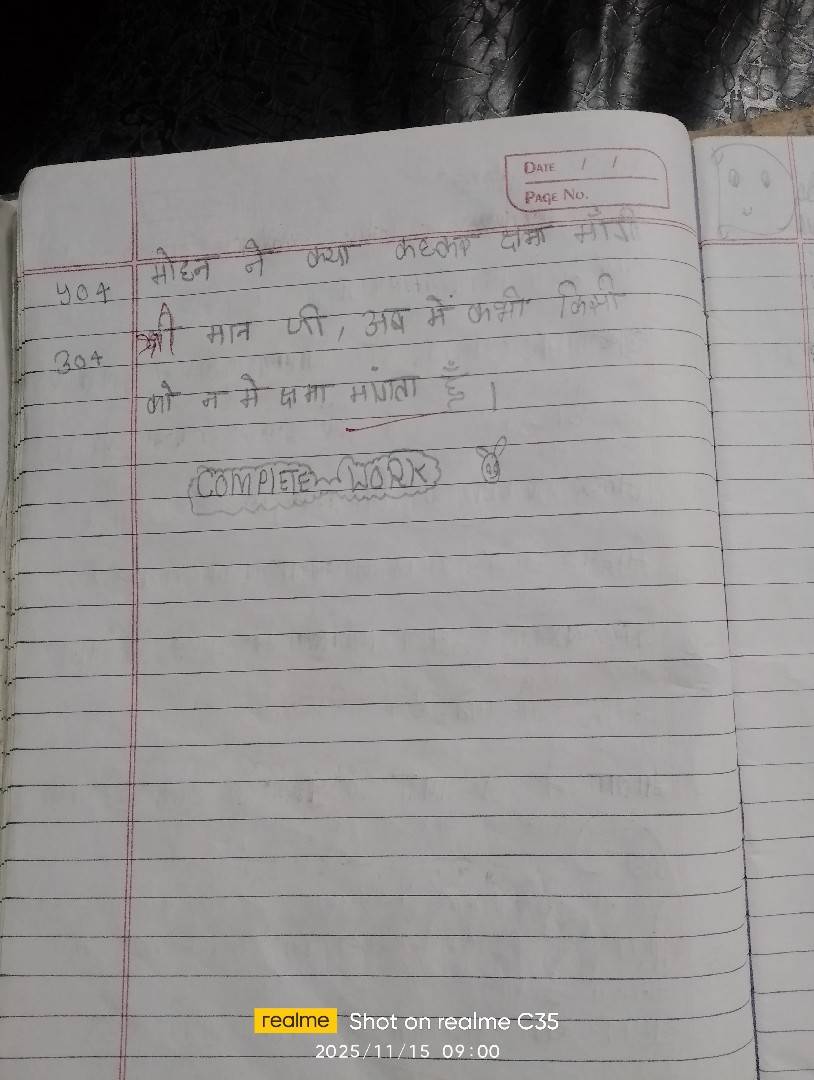 DATE / /
PAGE No.
प्र०4 मोहन ने क्या कहकर क्षमा माँगी
उ०4 श्री मान जी, अब में कभी किसी
को न मे क्षमा मांगता हूँ।
COMPLETE WORK
realme Shot on realme C35
2025/11/15 09:00